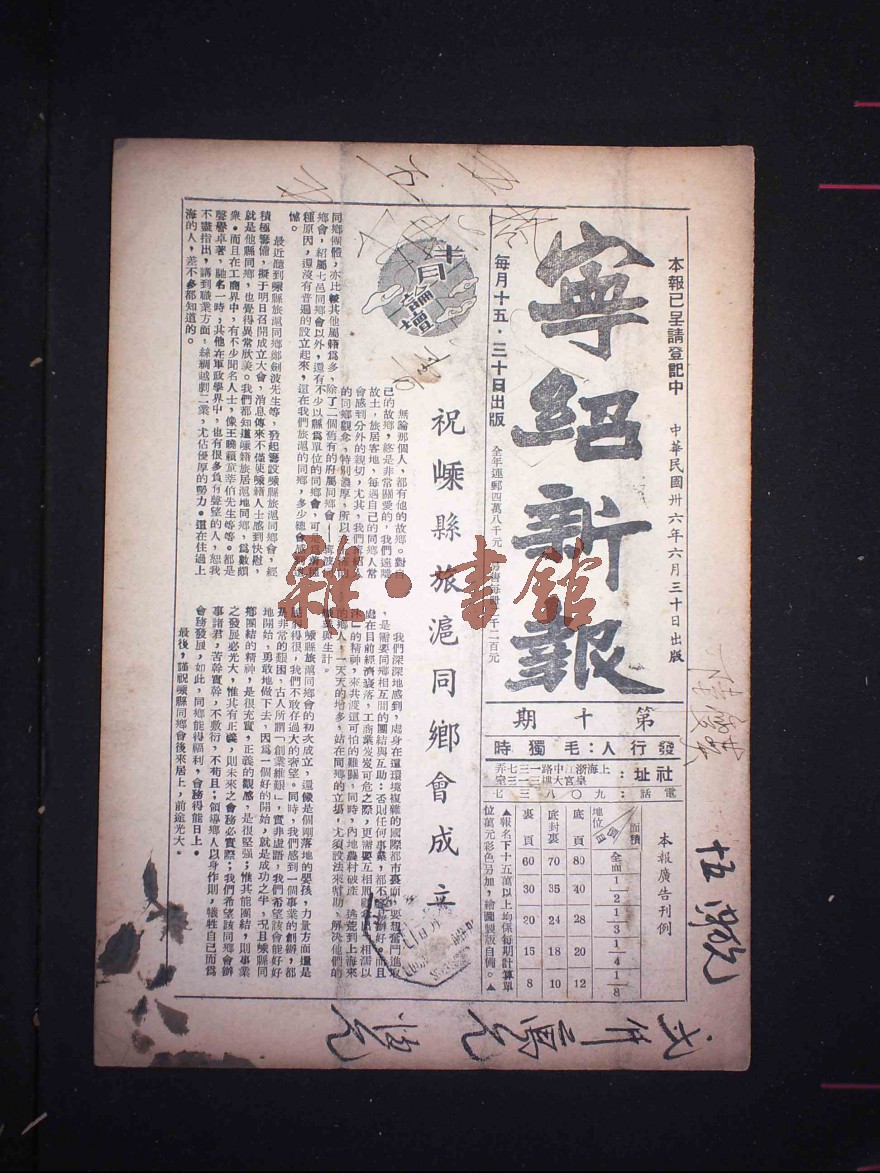 本報已呈請登記中
中華民國卅六年六月三十日出版
寧紹新報
每月十五·三十日出版
全年連郵四萬八千元
第十期
發行人：毛獨時
社址：上海浙江中路一三七弄
皇宮大樓三一三室
電話：九〇八三七
本報廣告刊例
面積 地位 全面 1/2 1/3 1/4 1/8
底頁 80 40 28 20 12
底封裏 70 35 24 18 10
裏頁 60 30 20 15 8
▲報名下十五萬以上均係每期計算單
位萬元彩色另加，繪圖製版自備。▲
半月論壇
祝嵊縣旅滬同鄉會成立
無論那個人，都有他的故鄉。對自
己的故鄉，終是非常關愛的，我們遠離
故土，旅居客地，每遇自己的同鄉人常
會感到分外的親切，尤其，我們寧紹人
的同鄉觀念，特別濃厚，所以
同鄉團體，亦比較其他屬籍爲多，除了二個舊有的府屬同鄉會——寧波
鄉會，紹屬七邑同鄉會以外，還有不少以縣爲單位的同鄉會，可
種原因，還沒有普遍的設立起來，這在我們旅滬的同鄉，多少總會感
憾。
最近聽到嵊縣旅滬同鄉鄭劍波先生等，發起籌設嵊縣旅滬同鄉會，經
積極籌備，擬于明日召開成立大會，消息傳來不僅使嵊籍人士感到快慰，
就是他縣同鄉，也覺得異常欣美。我們都知道嵊籍旅居滬地同鄉，爲數頗
衆。而且在工商界中，有不少聞名人士，像王曉籟童莘伯先生等等。都是
聲譽卓著，馳名一時，其他在軍政學界中，也有很多負有聲望的人，恕我
不盡指出，講到職業方面，絲綢越劇二業，尤佔優厚的勢力。還在住過上
海的人，差不多都知道的。
我們深深地感到，處身在這環境複雜的國際都市裏面，要想奮鬥進取
，是需要同鄉相互間的團結與互助；否則任何事業，都不
辦好。而且
處在目前經濟衰落，工商業岌岌可危之際，更需要互相照
相濡以
沫」的精神，來共渡這可怕的難關，同時，內地農村破產，逃荒到上海來
的鄉人，一天天的增多，站在同鄉的立場，尤須設法來幫助，解決他們的
與生計。
嵊縣旅滬同鄉會的初次成立，還像是個剛落地的嬰孩，力量方面還是
得很，我們不敢存過大的奢望。同時，我們感到一個事業的創辦，都
是非常的艱困，古人所謂「創業維艱」，實非虛語，我們希望該會能好好
地開始，勇敢地做下去，因爲一個好的開始，就是成功之半，況且嵊縣同
鄉團結的精神，是很充實，正義的觀感，是很堅强；惟其能團結，則事業
之發展必光大，惟其有正義，則未來之會務必實際；我們希望該同鄉會辦
事諸君，苦幹實幹，不敷衍，不苟且；領導鄉人以身作則，犧牲自己而爲
會務發展，如此，同鄉能得福利，會務得能日上。
最後，謹祝嵊縣同鄉會後來居上，前途光大。
雜·書館